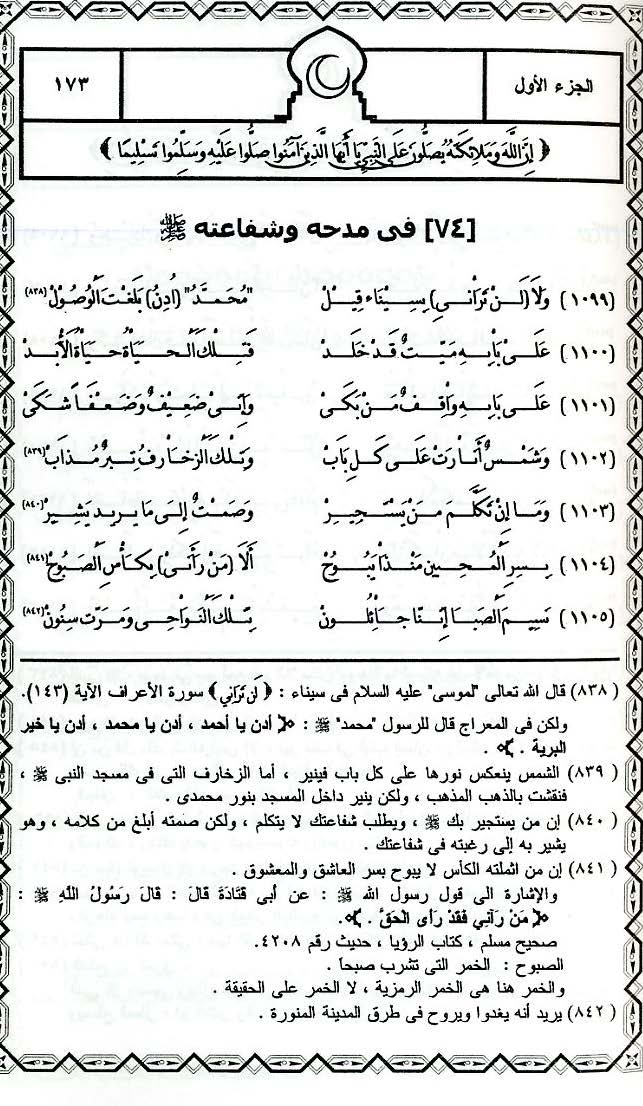 الجزء الأول
١٧٣
﴿ إِنَّ اللَّهَ وَمَلَائِكَتَهُ يُصَلُّونَ عَلَى النَّبِيِّ يَا أَيُّهَا الَّذِينَ آمَنُوا صَلُّوا عَلَيْهِ وَسَلِّمُوا تَسْلِيمًا ﴾
[٧٤] فى مدحه وشفاعته ﷺ
(١٠٩٩) وَلَا (لَنْ تَرَانِى) بِسِيْنَاء قِيْلْ "مُحَمَّدُ" (اُدِنُ) بَلَغْتَ الْوُصُوْلْ (٨٣٨)
(١١٠٠) عَلَىْ بَابِهِ مَيِتٌ قَدْ خَلَدْ فَتِلْكَ الْحَيَاةُ حَيَاةُ الْأَبَدْ
(١١٠١) عَلَىْ بَابِهِ وَاقِفٌ مَنْ بَكَىْ وَإِنِّى ضَعِيْفٌ وَضَعْفًا شَكَىْ
(١١٠٢) وَشَمْسٌ أَنَارَتْ عَلَىْ كَلِ بَابْ وَتِلْكَ الزَخَارِفُ تِبْرٌ مُذَابْ (٨٣٩)
(١١٠٣) وَمَا إِنْ تَكَلَّمَ مَنْ يَسْتَجِيْرْ وَصَمْتٌ إِلَى مَا يُرِيد يَشِيْرْ (٨٤٠)
(١١٠٤) بِسِرِ الْمُحِبِين مَنْذَا يَبُوْحْ أَلَا (مَن رَآنِىْ) بِكَأْسِ الْصَبُوحْ (٨٤١)
(١١٠٥) نَسِيمَ الْصَبَا إِنَّنَا جَائِلُونْ بِتِلْكَ النَوَاحِى وَمَرَت سِنُونْ (٨٤٢)
(٨٣٨) قال الله تعالى "لموسى" عليه السلام فى سيناء : ﴿ لَنْ تَرَانِي ﴾ سورة الأعراف الآية (١٤٣).
ولكن فى المعراج قال للرسول "محمد" ﷺ : ﴿ أدن يا أحمد ، أدن يا محمد ، أدن يا خير
البرية . ﴾ .
(٨٣٩) الشمس ينعكس نورها على كل باب فينير ، أما الزخارف التى فى مسجد النبى ﷺ ،
فنقشت بالذهب المذهب ، ولكن ينير داخل المسجد بنور محمدى .
(٨٤٠) إن من يستجير بك ﷺ ، ويطلب شفاعتك لا يتكلم ، ولكن صمته أبلغ من كلامه ، وهو
يشير به إلى رغبته فى شفاعتك .
(٨٤١) إن من اثملته الكأس لا يبوح بسر العاشق والمعشوق .
والإشارة الى قول رسول الله ﷺ : عن أبى قَتَادَةَ قالَ : قَالَ رَسُولُ اللَّهِ ﷺ :
﴿ مَنْ رَآنِي فَقَدْ رَأَى الْحَقَّ . ﴾.
صحيح مسلم ، كتاب الرؤيا ، حديث رقم ٤٢٠٨.
الصبوح : الخمر التى تشرب صبحاً .
والخمر هنا هى الخمر الرمزية ، لا الخمر على الحقيقة .
(٨٤٢) يريد أنه يغدوا ويروح فى طرق المدينة المنورة .